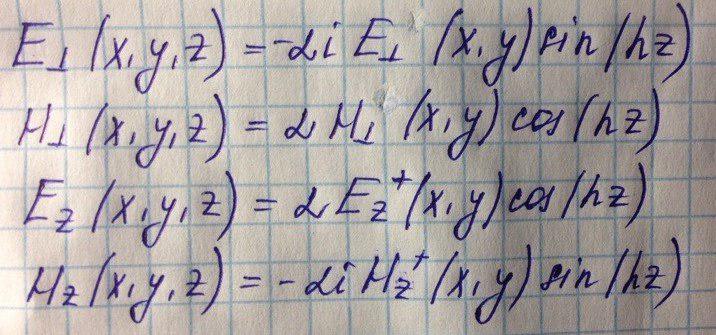 E⊥ (x,y,z) = -2i E⊥ (x,y) sin(hz)
H⊥ (x,y,z) = 2 H⊥ (x,y) cos(hz)
Ez (x,y,z) = 2 Ez⁺ (x,y) cos(hz)
Hz (x,y,z) = -2i Hz⁺ (x,y) sin(hz)